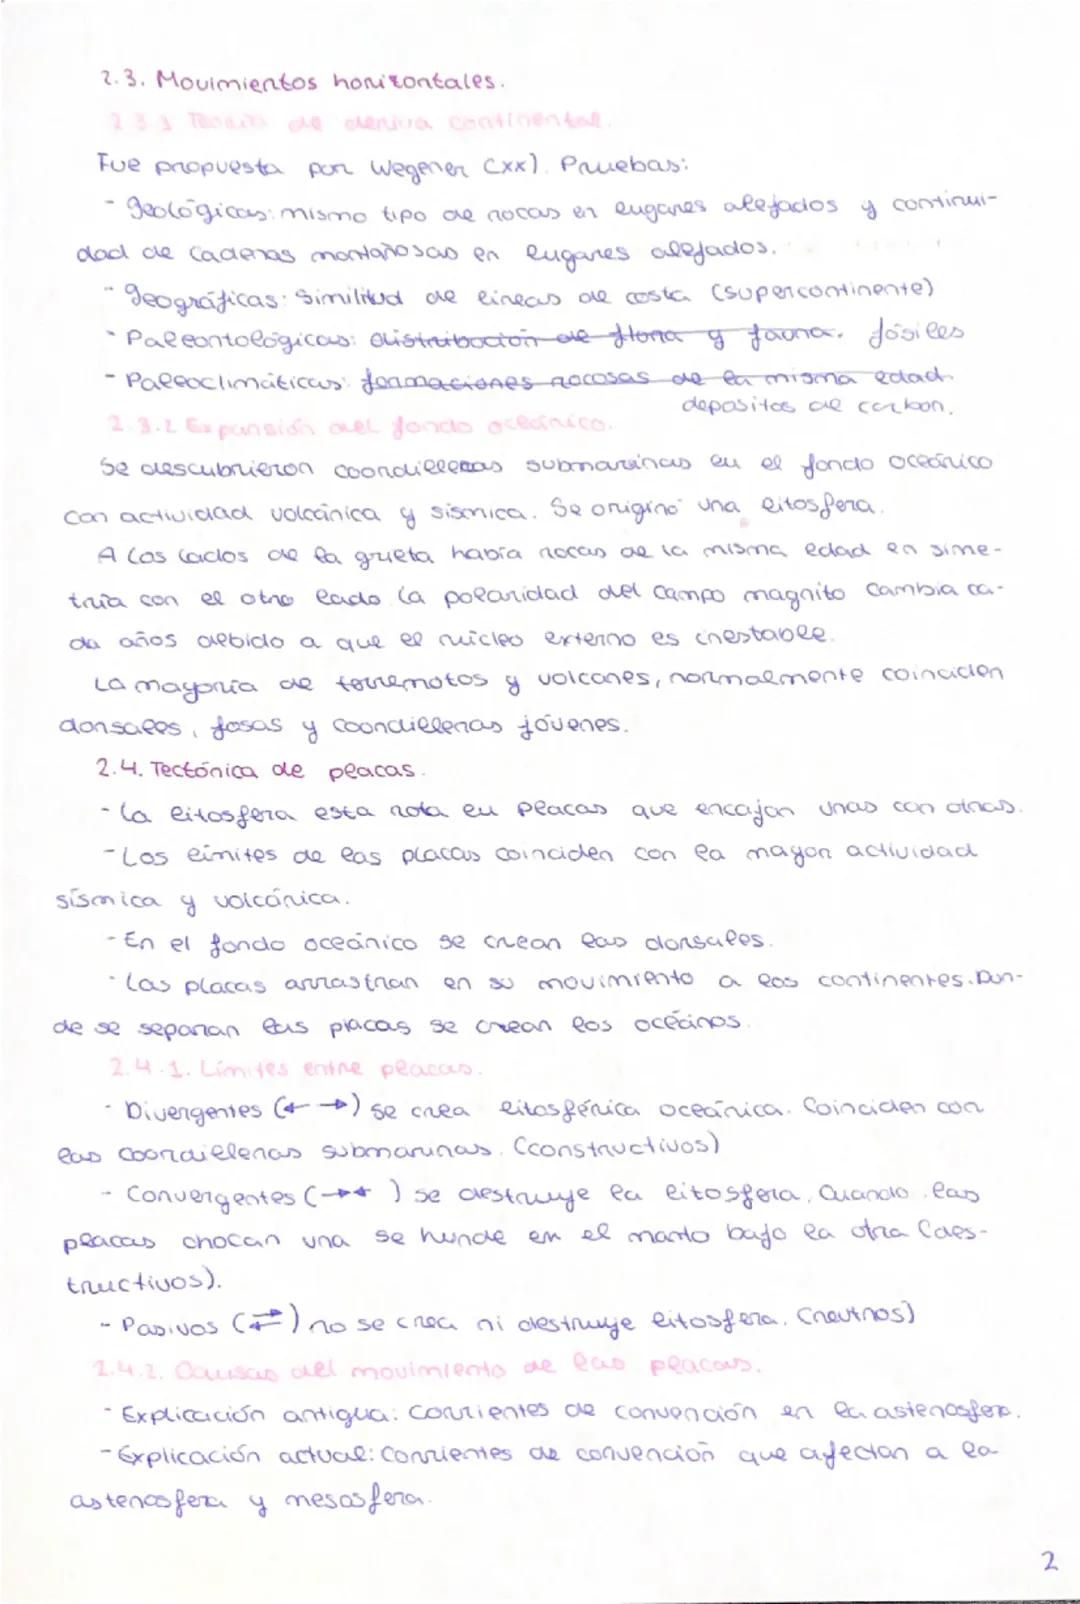 2.3. Movimientos horizontales.
2.3.1 Teoría de deriva continental.
Fue propuesta por Wegener (xx). Pruebas:
- geológicas: mismo tipo de rocas en lugares alejados y continui-
dad de cadenas montañosas en lugares alejados.
- geográficas: Similitud de líneas de costa (supercontinente)
- Paleontológicas: distribución de flora y fauna. fósiles
- Paleoclimáticas: formaciones rocosas de la misma edad.
depositos de carbon.
2.3.2 Expansión del fondo oceánico.
Se descubrieron coordilleras submarinas en el fondo oceánico
con actividad volcánica y sísmica. Se originó una litosfera.
A los lados de la grieta había rocas de la misma edad en sime-
tría con el otro lado. La polaridad del campo magnito cambia ca-
da años debido a que el núcleo externo es inestable.
La mayoría de terremotos y volcanes, normalmente coinciden
dorsales, fosas y coordilleras jóvenes.
2.4. Tectónica de placas.
- La litosfera esta rota en placas que encajan unas con otras.
- Los límites de las placas coinciden con la mayor actividad
sísmica y volcánica.
- En el fondo oceánico se crean las dorsales.
- Las placas arrastran en su movimiento a los continentes. Don-
de se separan las placas se crean los océanos.
2.4.1. Límites entre placas.
- Divergentes (← →) se crea litosférica oceánica. Coinciden con
las coordilleras submarinas. (constructivos)
- Convergentes (→←) se destruye la litosfera. Cuando las
placas chocan una se hunde en el manto bajo la otra (des-
tructivos).
- Pasivos (⇄) no se crea ni destruye litosfera. (neutros)
2.4.2. Causas del movimiento de las placas.
- Explicación antigua: Corrientes de convención en la astenosfera.
- Explicación actual: Corrientes de convención que afectan a la
astenosfera y mesosfera.
2